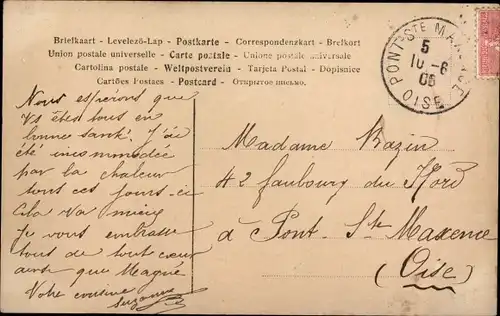 Briefkaart - Levelező-Lap - Postkarte - Correspondenzkart - Brefkort
Union postale universelle - Carte postale - Unione postale universale
Cartolina postale - Weltpostverein - Tarjeta Postal - Dopisnice
Cartões Postaes - Postcard - Открытое письмо.
PONT-STE MAXENCE
5
10-6
05
OISE
Nous espérons que
Vs êtes tous en
bonne santé. J'ai
été incommodée
par la chaleur
tout ces jours-ci
Cela va mieux
Je vous embrasse
tous de tout cœur
ainsi que Magne
Votre cousine
Suzanne
Madame Bazin
42 faubourg du Nord
à Pont Ste Maxence
(Oise)